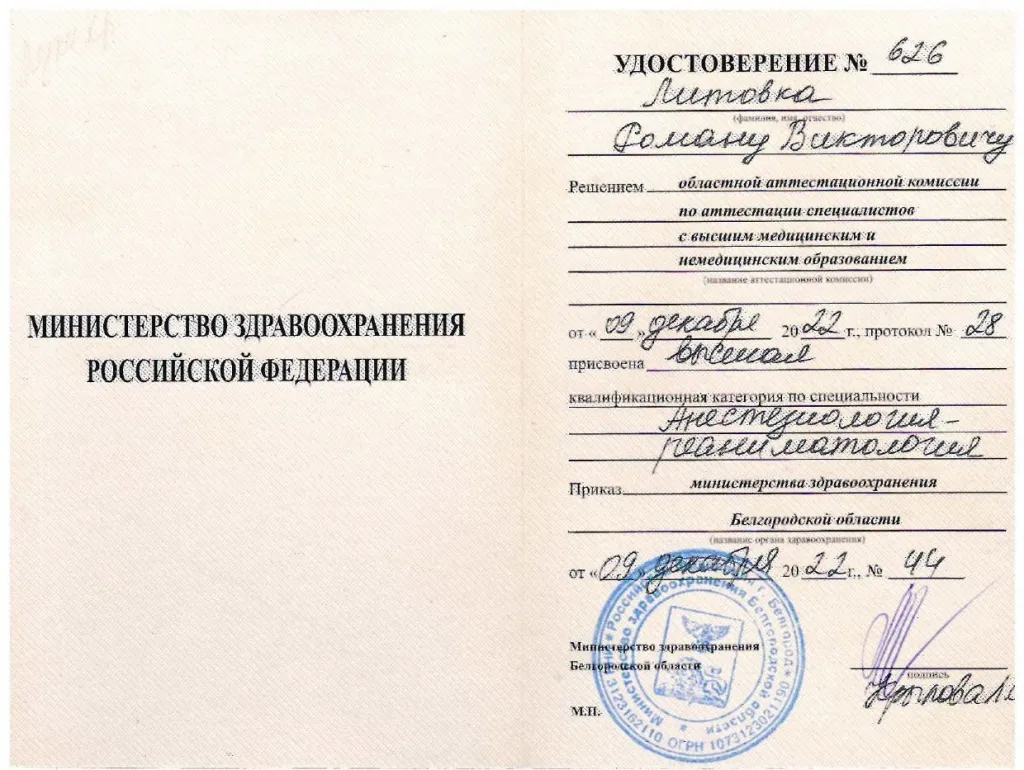 МИНИСТЕРСТВО ЗДРАВООХРАНЕНИЯ
РОССИЙСКОЙ ФЕДЕРАЦИИ
УДОСТОВЕРЕНИЕ № 626
Литовка
(фамилия, имя, отчество)
Роману Викторовичу
Решением областной аттестационной комиссии
по аттестации специалистов
с высшим медицинским и
немедицинским образованием
(название аттестационной комиссии)
от «09» декабря 2022 г., протокол № 28
присвоена высшая
квалификационная категория по специальности
Анестезиология-
реаниматология
Приказ министерства здравоохранения
Белгородской области
(название органа здравоохранения)
от «09» декабря 2022 г., № 44
Министерство здравоохранения
Белгородской области
подпись
М.П.
Министерство здравоохранения Белгородской области
г. Белгород
ОГРН 1073123021190
3123162110